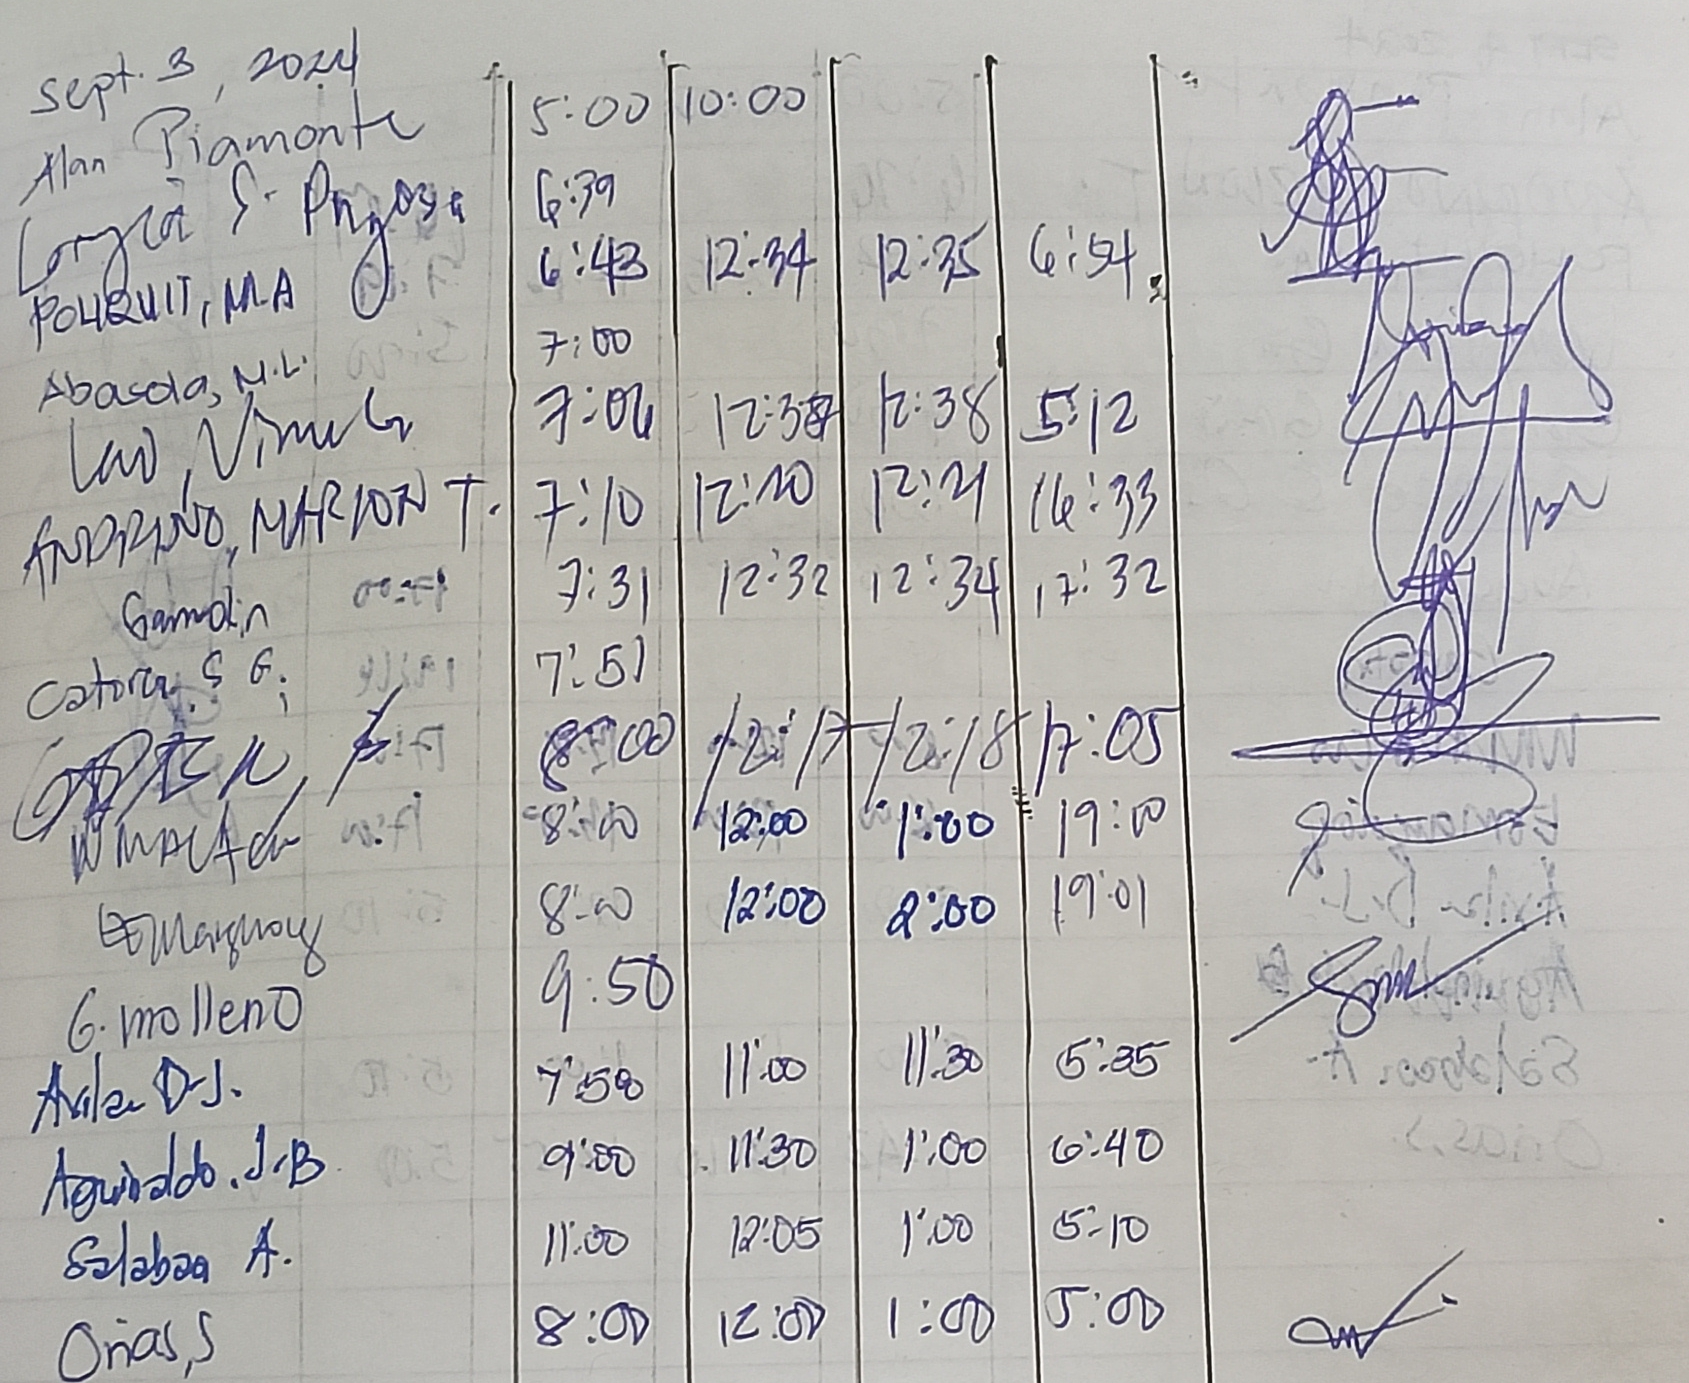 Sept. 3, 2024
Alan Piamonte 5:00 10:00
6:39
POLIQUIT, M.A 6:43 12:34 12:35 6:54
Abasola, M.L. 7:00
Lao, 7:06 12:12:38 5:12
ANDRINO, MARION T. 7:10 12:20 12:21 16:33
Gamolin 7:31 12:32 12:34 17:32
Catoria, S G. 7:51
8:00 12:17 12:18 17:05
8:00 12:00 1:00 19:00
8:00 12:00 2:00 19:01
G. molleno 9:50
Avila D.J. 7:50 11:00 11:30 5:35
Aguinaldo. J.B 9:00 11:30 1:00 6:40
Salabao A. 11:00 12:05 1:00 5:10
Orias, S 8:00 12:00 1:00 5:00